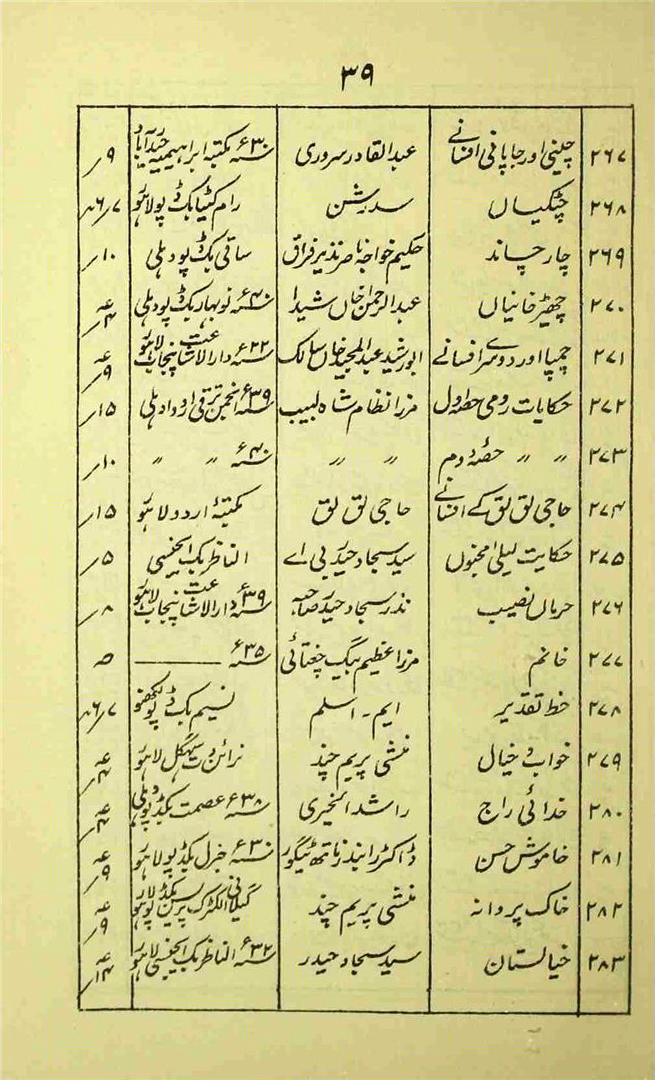 ۳۹
۲۶۷ چینی اور جاپانی افسانے عبدالقادر سروری سنہ ۳۰ء مکتبہ ابراہیمیہ حیدرآباد ۹؍
۲۶۸ چٹکیاں سدرشن رام کٹیا بک ڈپو لاہور
۲۶۹ چار چاند حکیم خواجہ ناصر نذیر فراق ساقی بک ڈپو دہلی ۱۰؍
۲۷۰ چھیڑ خانیاں عبدالرحمن خاں شیدا سنہ ۴۰ء نو بہار بک ڈپو دہلی
۲۷۱ چمپا اور دوسرے افسانے ابو رشید عبدالمجید خاں سالک سنہ ۲۲ء دارالاشاعت پنجاب لاہور
۲۷۲ حکایات رومی حصہ اول مرزا نظام شاہ لبیب سنہ ۳۹ء انجمن ترقی اردو دہلی ۱۵؍
۲۷۳ 〃 〃 حصّہ دوم 〃 〃 سنہ ۴۰ء 〃 〃 ۱۰؍
۲۷۴ حاجی لق لق کے افسانے حاجی لق لق مکتبۂ اردو لاہور ۱۵؍
۲۷۵ حکایت لیلیٰ مجنوں سید سجاد حیدر بی اے الناظر بک ایجنسی ۵؍
۲۷۶ حرماں نصیب نذر سجاد حیدر صاحبہ سنہ ۳۹ء دارالاشاعت پنجاب لاہور ۸؍
۲۷۷ خانم مرزا عظیم بیگ چغتائی سنہ ۳۵ء ——
۲۷۸ خط تقدیر ایم - اسلم نسیم بک ڈپو لکھنؤ
۲۷۹ خواب و خیال منشی پریم چند نرائن دت سہگل لاہور
۲۸۰ خدائی راج راشد الخیری سنہ ۳۸ء عصمت بکڈپو دہلی
۲۸۱ خاموش حسن ڈاکٹر رابندر ناتھ ٹیگور سنہ ۳۰ء جنرل بکڈپو لاہور
۲۸۲ خاک پروانہ منشی پریم چند گیلانی الکٹرک پریس بکڈپو لاہور
۲۸۳ خیالستان سید سجاد حیدر سنہ ۳۲ء الناظر بک ایجنسی لاہور